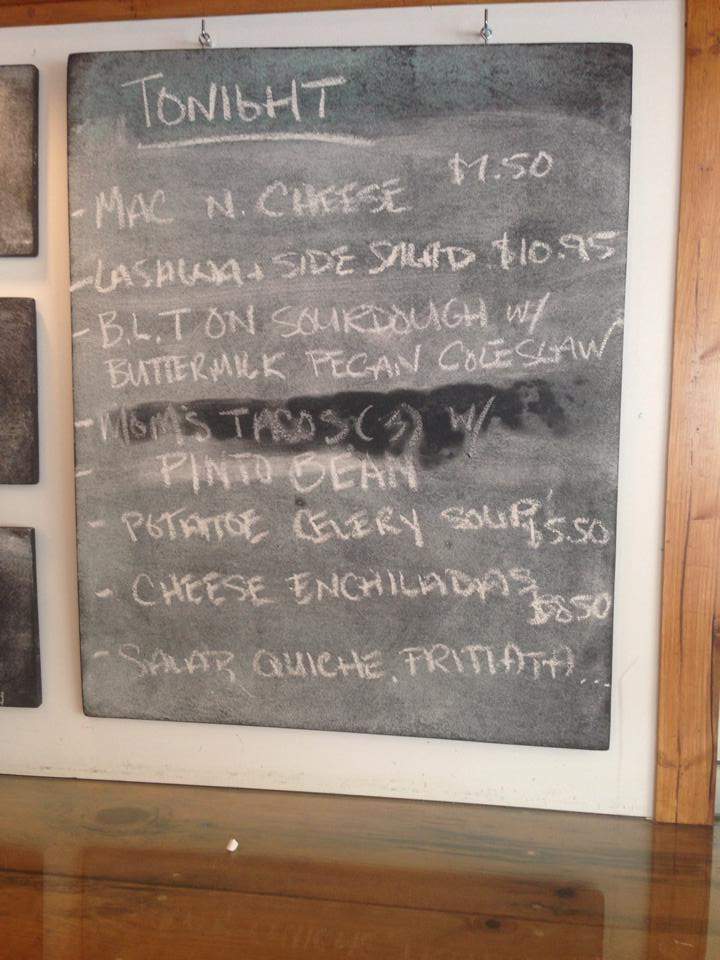 TONIGHT
- MAC N. CHEESE $7.50
- LASAGNA + SIDE SALAD $10.95
- B.L.T ON SOURDOUGH W/
BUTTERMILK PECAN COLESLAW
- MOM'S TACOS (3) W/
- PINTO BEAN
- POTATOE CELERY SOUP $5.50
- CHEESE ENCHILADAS $8.50
- SALAD, QUICHE, FRITTATA...